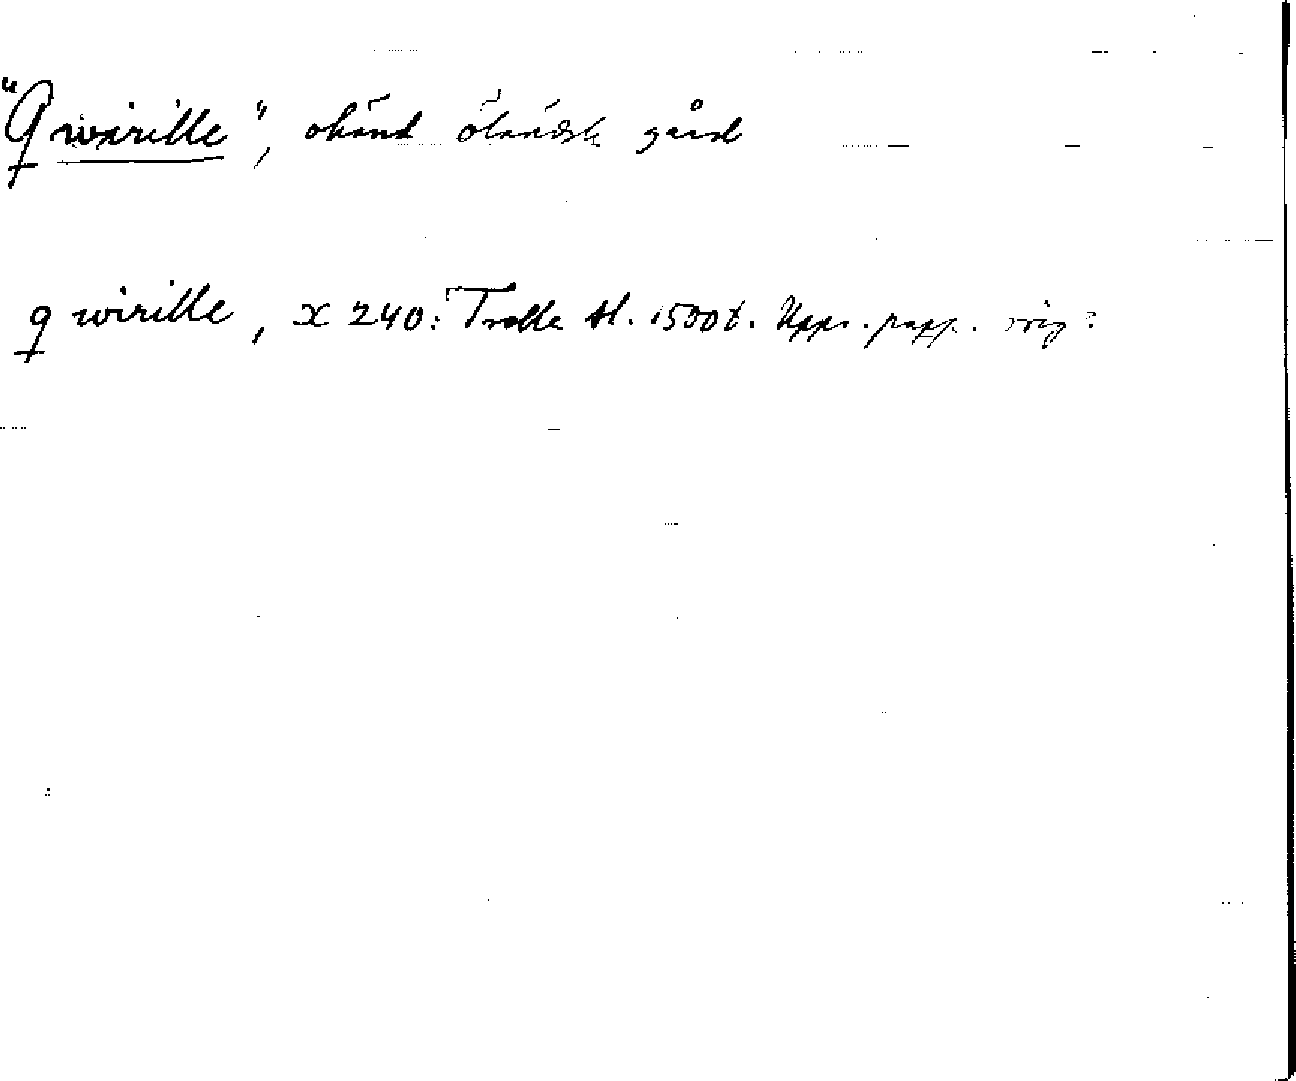 "Qwirille", okänd öländsk gård
qwirille, X 240: Trolle bl. 1500t. Upps. papp. orig: